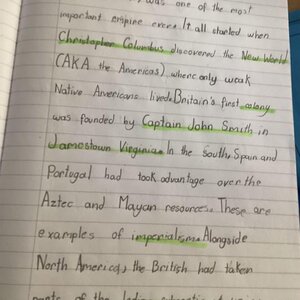 was one of the most
important empire ever. It all started when
Christopher Columbus discovered the New World
(AKA the Americas) where only weak
Native Americans lived. Britain's first colony
was founded by Captain John Smith in
Jamestown Virginia. In the South, Spain and
Portugal had took advantage over the
Aztec and Mayan resources. These are
examples of imperialism. Alongside
North America, the British had taken
of the